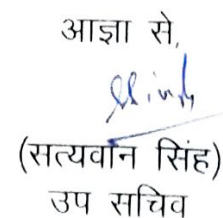 आज्ञा से,
(सत्यवान सिंह)
उप सचिव